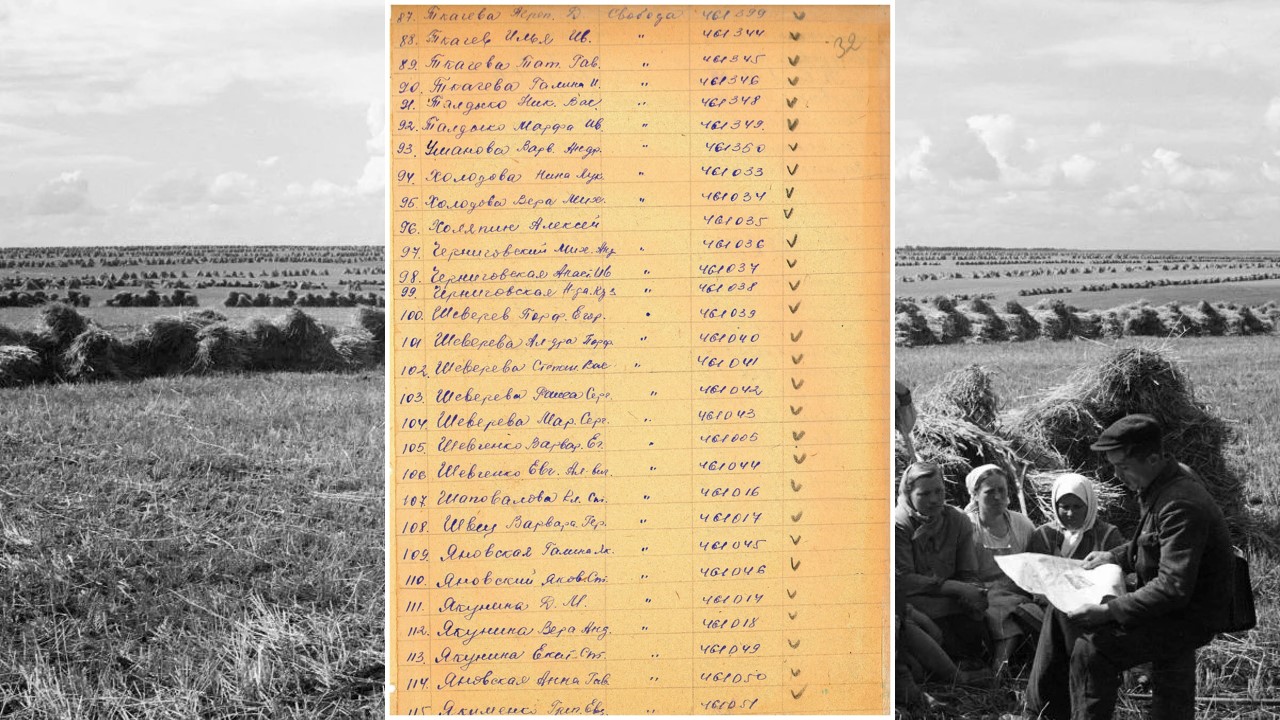 87. Ткачева Д Свобода 461399
88. Ткачев Илья Ив. " 461344
32
89. Ткачева Тат. Гав. " 461345
90. Ткачева Галина И. " 461346
91. Талдыко Ник. Вас. " 461348
92. Талдыко Марфа Ив. " 461349.
93. Уманова Варв. Андр. " 461350
94. Холодова Нина Лук. " 461033
95. Холодова Вера Мих. " 461034
96. Холяпин Алексей 461035
97. Черниговский Мих. Анд " 461036
98. Черниговская Анаст Ив " 461037
99. Черниговская Куз. " 461038
100. Шеверев Порф. Егор. " 461039
101 Шеверева Ал-дра Порф. " 461040
102. Шеверева Вас. " 461041
103. Шеверева Раиса Серг. " 461042
104. Шеверева Мар. Серг. " 461043
105. Шевченко Варвар. Ег. " 461005
106 Шевченко Евг. " 461044
107. Шаповалова Ст. " 461016
108. Швец Варвара Гер. " 461017
109. Яновская Галина Як. " 461045
110. Яновский Яков Ст. " 461046
111. Якунина Д. М. " 461014
112. Якунина Вера Анд. " 461018
113. Якунина Екат. Ст. " 461049
114. Яновская Анна Гав. " 461050
115 Якименко Григ. Евд. " 461051